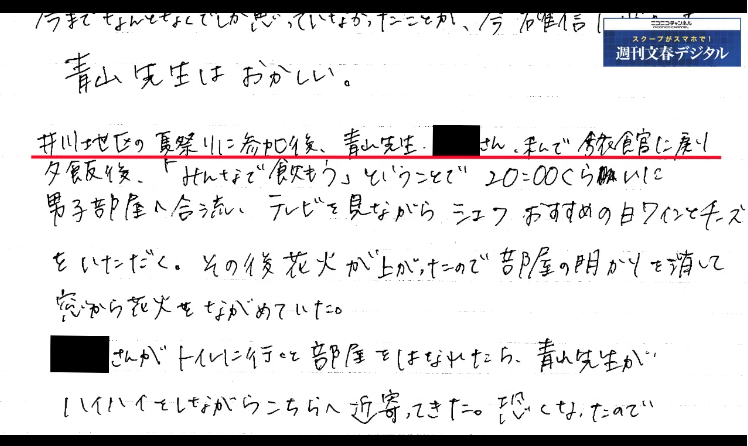 今までなんとなくでしか思っていなかったことが、今確信に
ニコニコチャンネル
スクープがスマホで!
週刊文春デジタル
青山先生はおかしい。
井川地区の夏祭りに参加後、青山先生、さん、私で 宿舎に戻り
夕飯後、「みんなで飲もう」ということで 20:00くらいに
男子部屋へ合流、テレビを見ながら シェフおすすめの白ワインとチーズ
をいただく。その後花火が上がったので部屋の明かりを消して
窓から花火をながめていた。
さんがトイレに行くと部屋をはなれたら、青山先生が
ハイハイをしながらこちらへ近寄ってきた。恐くなったので